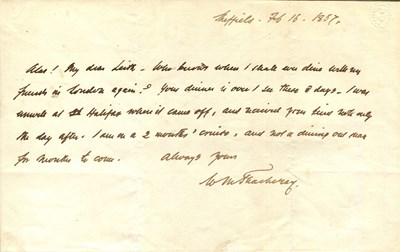 Sheffield. Feb 16. 1857.
Alas! My dear Leith. Who knows when I shall dine with my
friends in London again? Your dinner is over I see these 8 days. I was
at Halifax when it came off, and received your kind note only
the day after. I am on a 2 months' cruise, and not a dining out man
for months to come. Always yours
W M Thackeray.